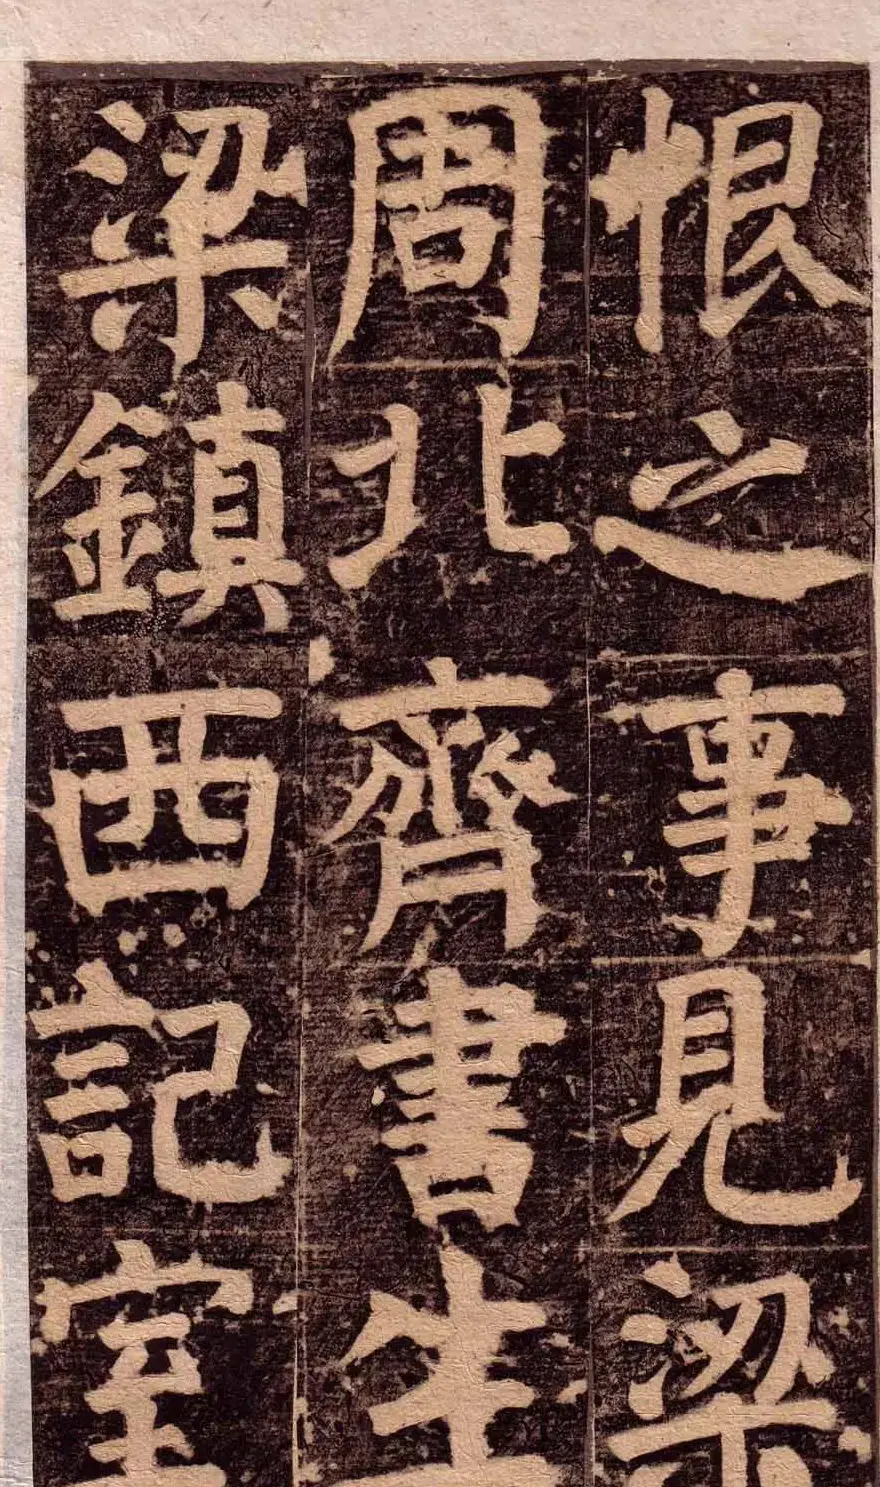 恨之事見梁
周北齊書生
梁鎮西記室